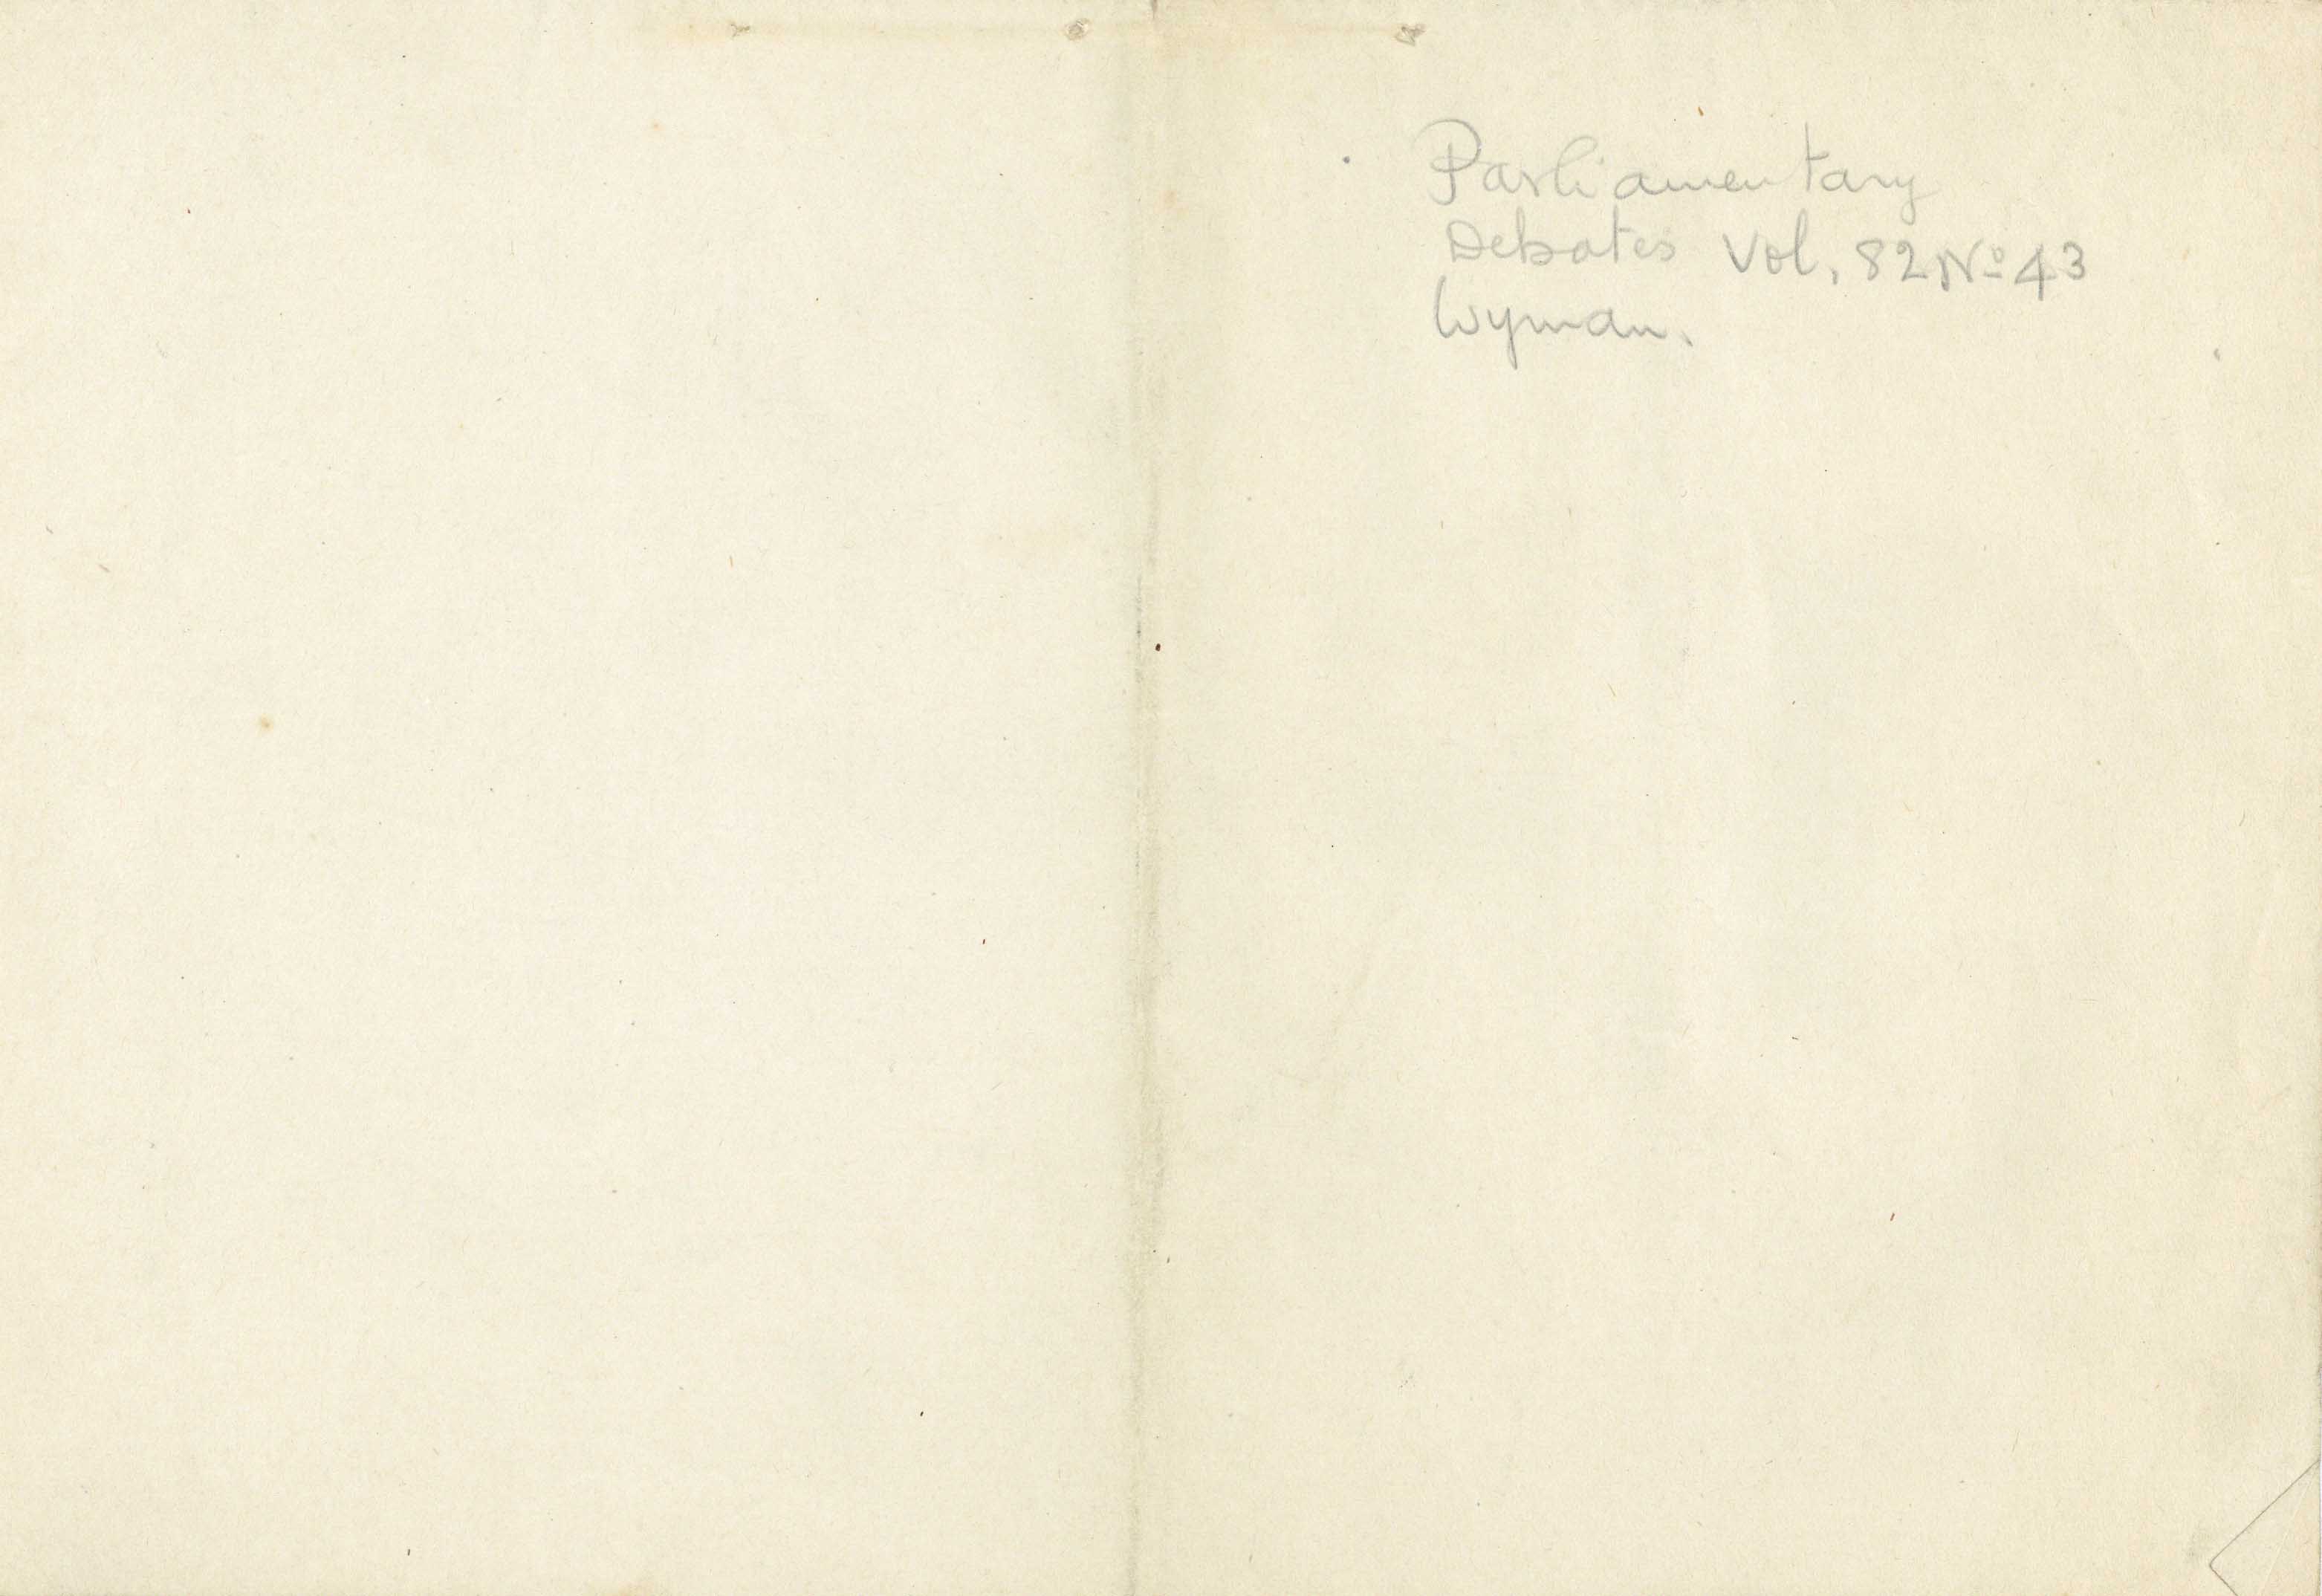 Parliamentary
Debates Vol. 82 Nº 43
Wyman.